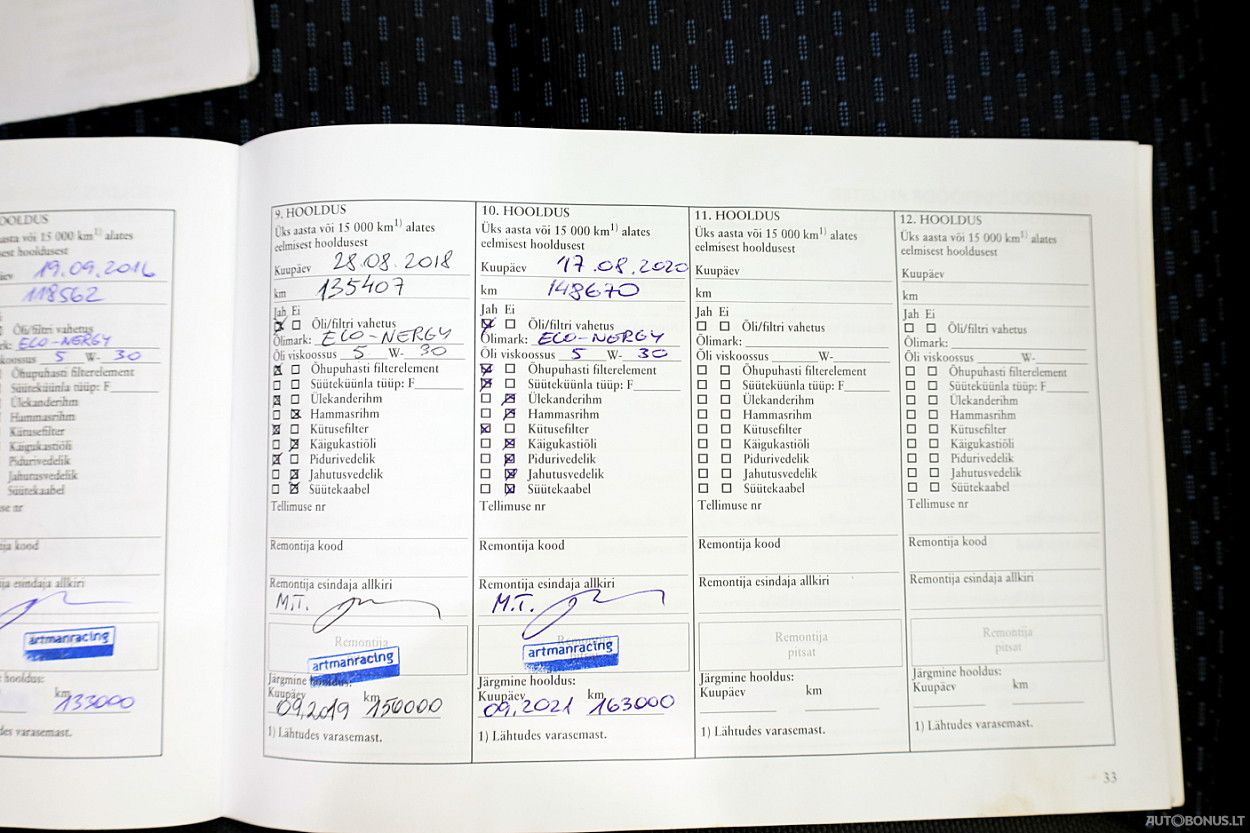 OOLDUS
aasta või 15 000 km1) alates
sest hooldusest
äev 19.09.2016
118562
Õli/filtri vahetus
rk: ECO-NERGY
koossus 5 W- 30
Õhupuhasti filterelement
Süüteküünla tüüp: F
Ülekanderihm
Hammasrihm
Kütusefilter
Käigukastiõli
Pidurivedelik
Jahutusvedelik
Süütekaabel
se nr
ija kood
ija esindaja allkiri
artmanracing
e hooldus:
km
133000
des varasemast.
9. HOOLDUS
Üks aasta või 15 000 km1) alates
eelmisest hooldusest
Kuupäev 28.08.2018
km 135407
Jah Ei
Õli/filtri vahetus
Õlimark: ECO-NERGY
Õli viskoossus 5 W- 30
Õhupuhasti filterelement
Süüteküünla tüüp: F
Ülekanderihm
Hammasrihm
Kütusefilter
Käigukastiõli
Pidurivedelik
Jahutusvedelik
Süütekaabel
Tellimuse nr
Remontija kood
Remontija esindaja allkiri
M.T.
Remontija
artmanracing
Järgmine hooldus:
Kuupäev km
09.2019 150000
1) Lähtudes varasemast.
10. HOOLDUS
Üks aasta või 15 000 km1) alates
eelmisest hooldusest
Kuupäev 17.08.2020
km 148670
Jah Ei
Õli/filtri vahetus
Õlimark: ECO-NERGY
Õli viskoossus 5 W- 30
Õhupuhasti filterelement
Süüteküünla tüüp: F
Ülekanderihm
Hammasrihm
Kütusefilter
Käigukastiõli
Pidurivedelik
Jahutusvedelik
Süütekaabel
Tellimuse nr
Remontija kood
Remontija esindaja allkiri
M.T.
Remontija
pitsat
artmanracing
Järgmine hooldus:
Kuupäev km
09.2021 163000
1) Lähtudes varasemast.
11. HOOLDUS
Üks aasta või 15 000 km1) alates
eelmisest hooldusest
Kuupäev
km
Jah Ei
Õli/filtri vahetus
Õlimark:
Õli viskoossus W-
Õhupuhasti filterelement
Süüteküünla tüüp: F
Ülekanderihm
Hammasrihm
Kütusefilter
Käigukastiõli
Pidurivedelik
Jahutusvedelik
Süütekaabel
Tellimuse nr
Remontija kood
Remontija esindaja allkiri
Remontija
pitsat
Järgmine hooldus:
Kuupäev km
1) Lähtudes varasemast.
12. HOOLDUS
Üks aasta või 15 000 km1) alates
eelmisest hooldusest
Kuupäev
km
Jah Ei
Õli/filtri vahetus
Õlimark:
Õli viskoossus W-
Õhupuhasti filterelement
Süüteküünla tüüp: F
Ülekanderihm
Hammasrihm
Kütusefilter
Käigukastiõli
Pidurivedelik
Jahutusvedelik
Süütekaabel
Tellimuse nr
Remontija kood
Remontija esindaja allkiri
Remontija
pitsat
Järgmine hooldus:
Kuupäev km
1) Lähtudes varasemast.
33
AUTOBONUS.LT